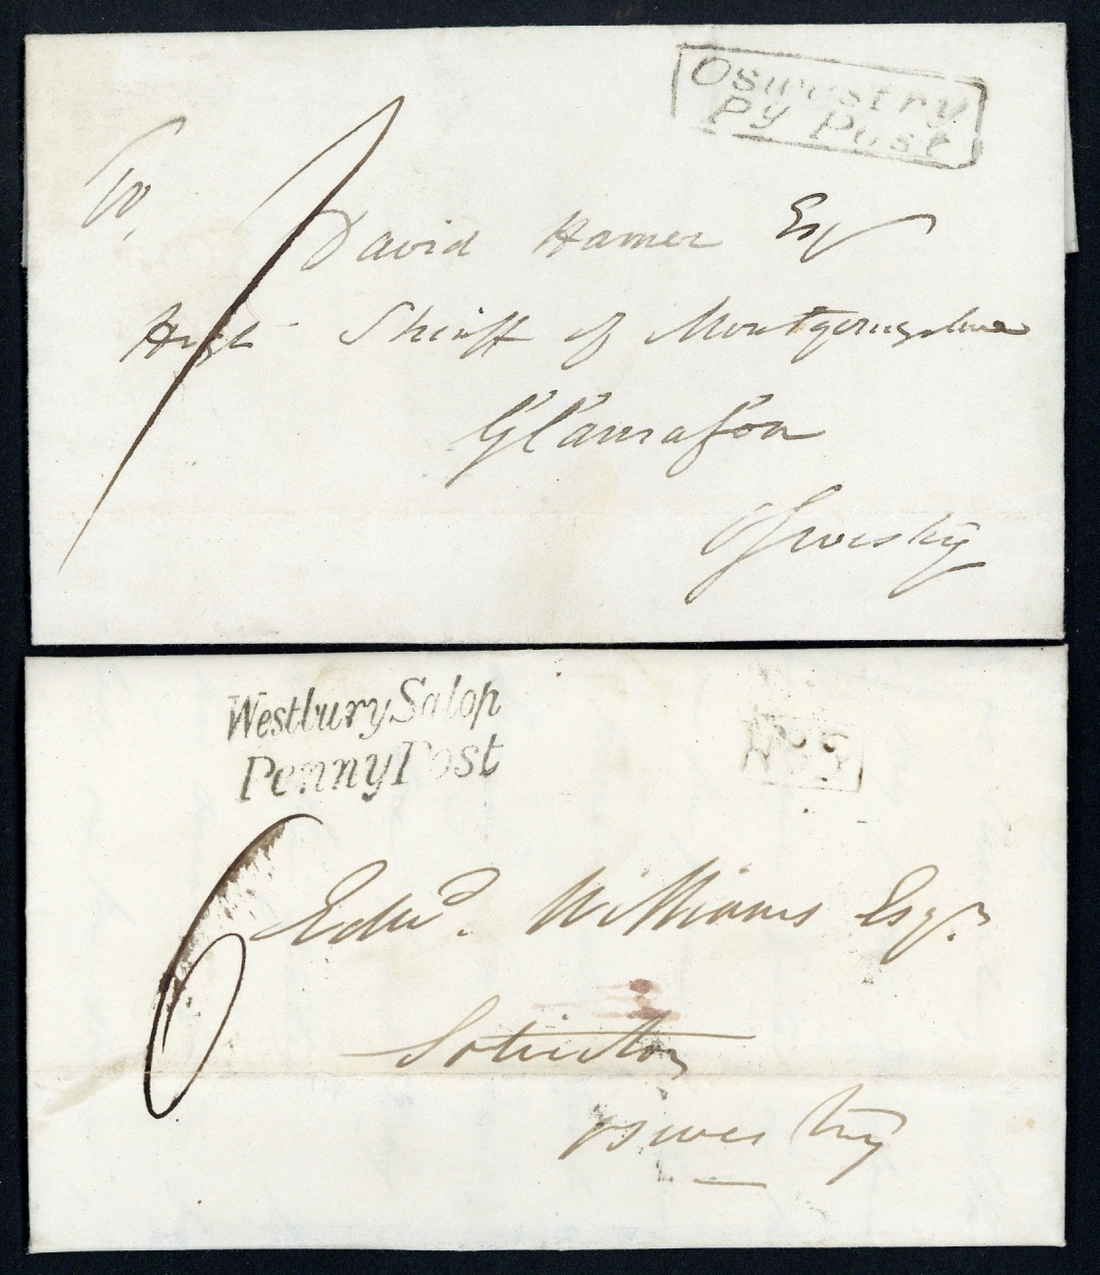 Oswestry
Py Post
To,
David Hamer Esq
High Sheriff of Montgomeryshire
Glanrafon
Oswestry
Westbury Salop
Penny Post
No 3
6
Edwd. Williams Esqr.
Solicitor
Oswestry